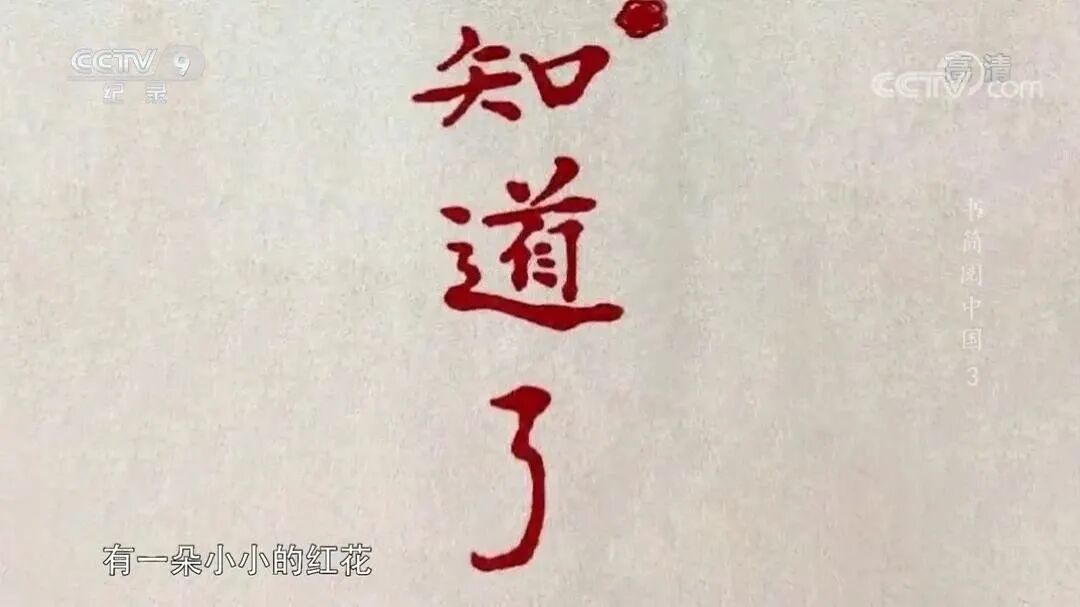 CCTV 9
纪录
高清
CCTV.com
知
道
了
书简阅中国3
有一朵小小的红花